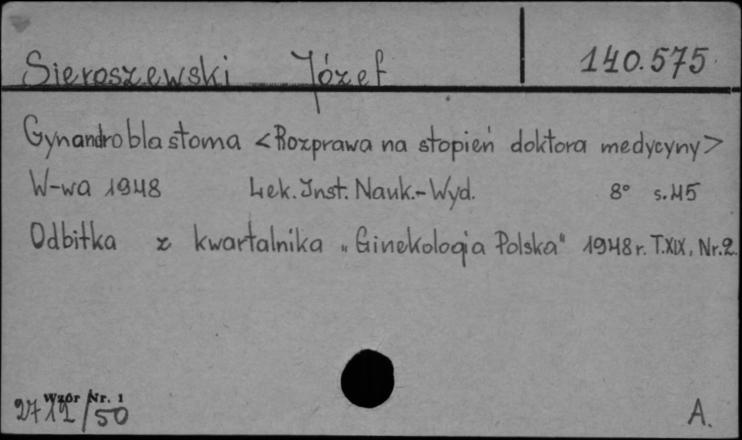 Sieroszewski Józef 140.575
Gynandroblastoma <Rozprawa na stopień doktora medycyny>
W-wa 1948 Lek. Inst. Nauk.-Wyd. 8° s.45
Odbitka z kwartalnika „Ginekologia Polska" 1948 r. T.XIX, Nr.2.
Wzór Nr. 1
2712/50 A.